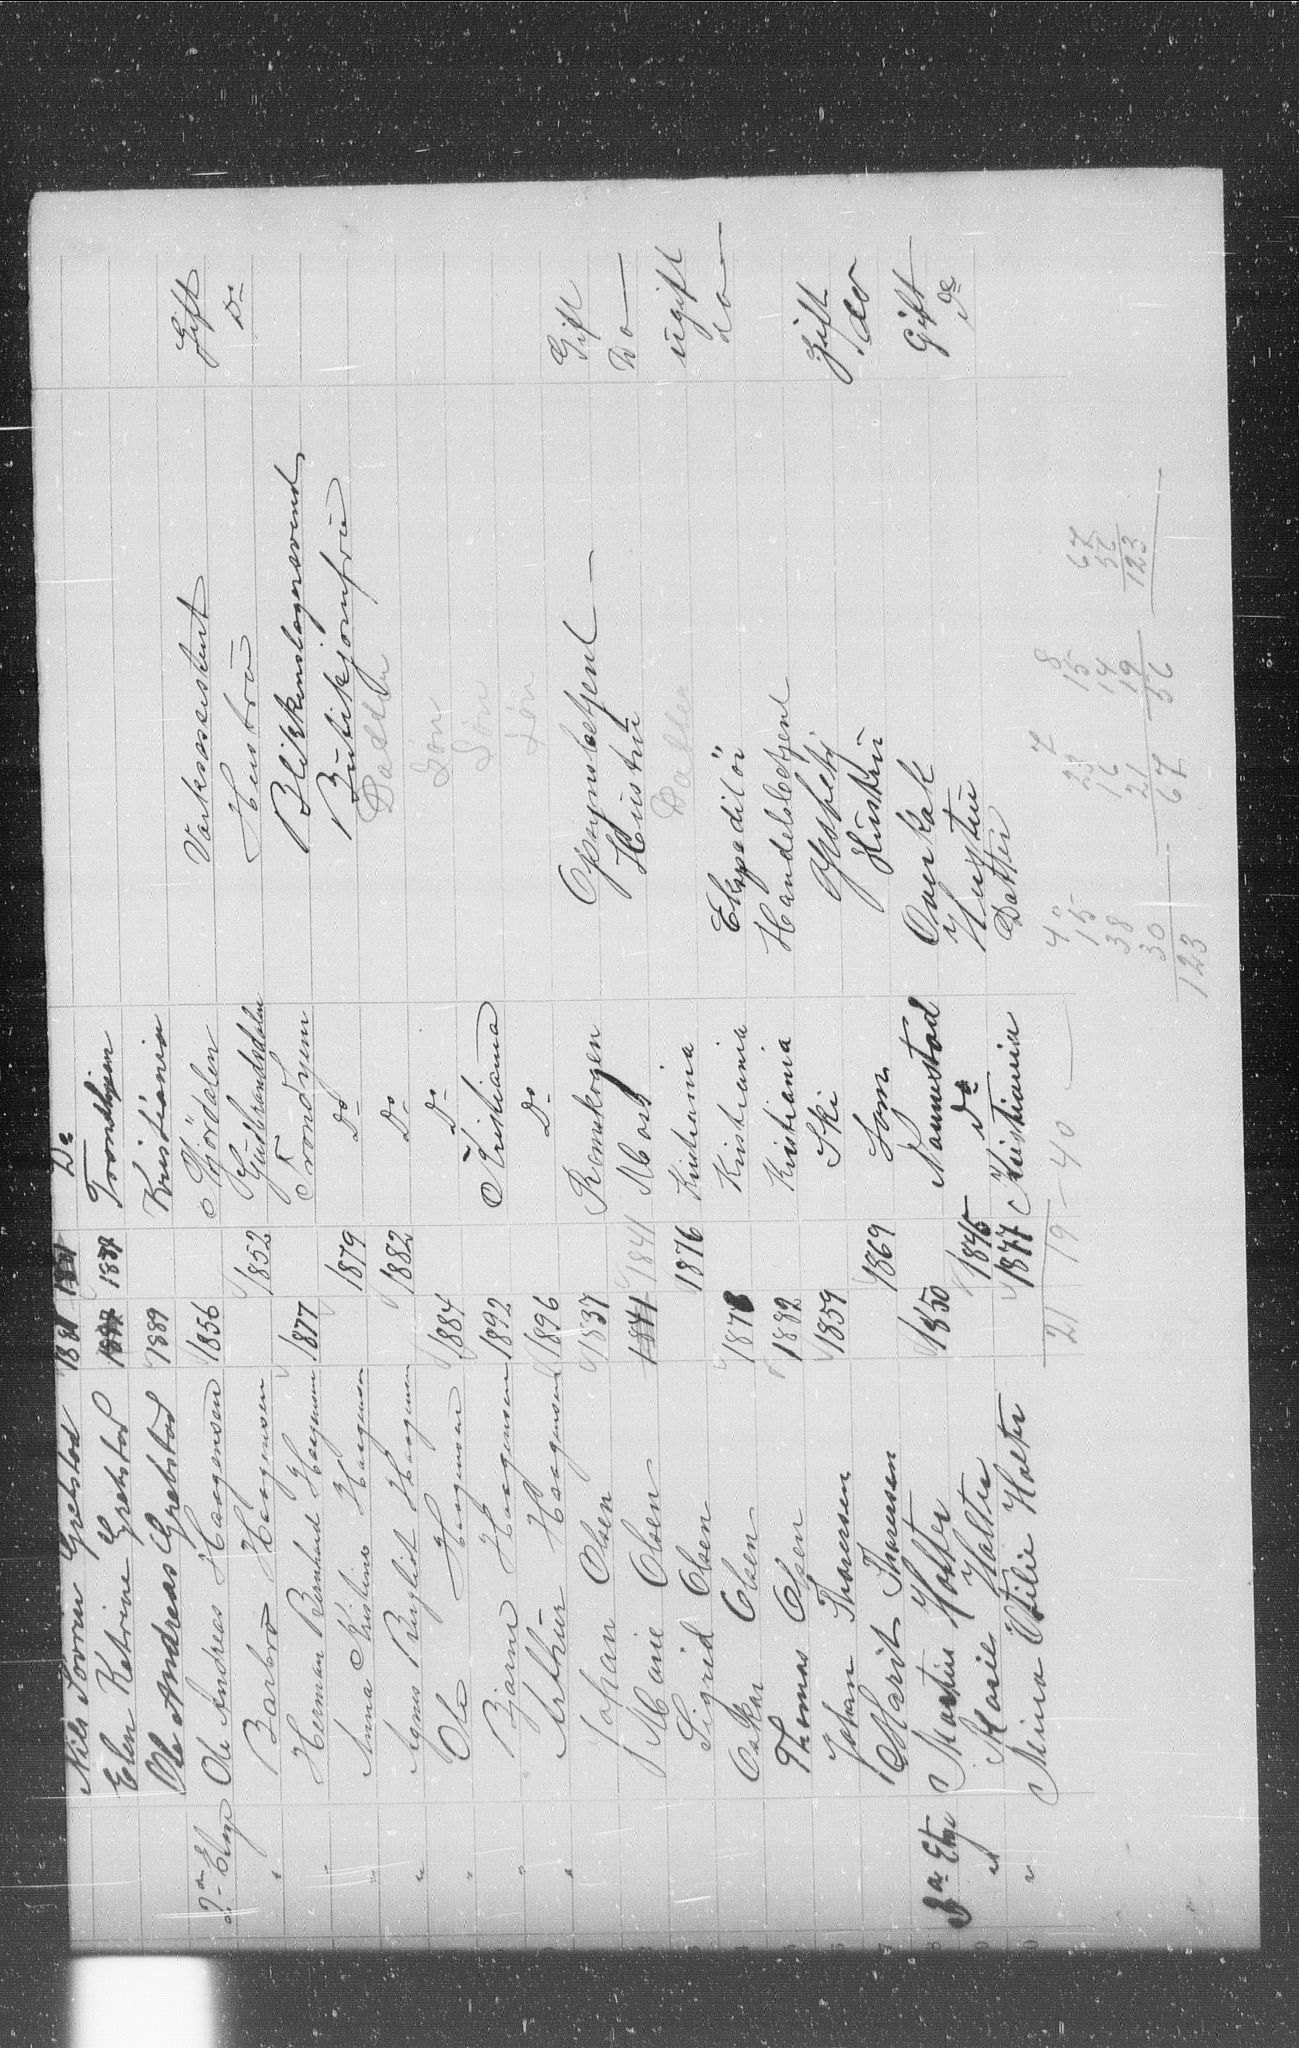 Nils Sovrin Grebstad 1881 De
Elen Katrine Grebstad 1887 Trondhjem
Ole Andreas Grebstad 1889 Kristiania
2den Etage Ole Andreas Haagensen 1856 Stjördalen Værksassistent Gift
" Barbro Haagensen 1852 Gudbrandsdalen Hustru Do
" Herman Bernhard Haagensen 1877 Trondhjem Blikkenslagersvend
" Anna Kristine Haagensen 1879 Do Butikjomfru
" Agnes Birgliot Haagensen 1882 Do Datter
" Ole Haagensen 1884 Do Søn
" Bjarne Haagensen 1892 Kristiania Søn
" Arthur Haagensen 1896 Do Søn
Johan Olsen 1837 Romskogen Opsynsbetjent Gift
Marie Olsen 1841 1841 Moss Hustru Do
Sigrid Olsen 1876 Kristiania Datter
Oskar Olsen 1878 Kristiania Ekspeditör ugift
Thomas Olsen 1882 Kristiania Handelsbetjent do
Johan Thoresen 1859 Ski Gift
Marit Thoresen 1869 Lom Hustru do
3die Etage Martin Holter 1850 Nannestad Gift
" Marie Holter 1845 Do Hustru Do
" Mina Otilie Holter 1877 Kristiania Datter
21 19 - 40
4
15
38
30
123
7
23
16
21
67
8
15
14
19
56
67
56
123